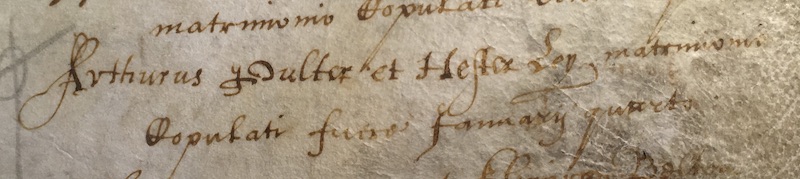 matrimonio Copulati
Arthurus Pulter et Hester Ley matrimoni
Copulati fuere Januarij quarto